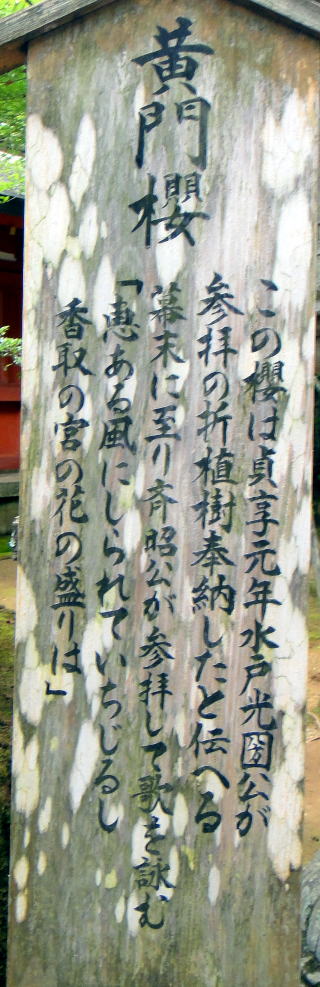 黄門櫻
この櫻は貞享元年水戸光圀公が
参拝の折植樹奉納したと伝へる
幕末に至り斉昭公が参拝して歌を詠む
「恵ある風にしられていちじるし
香取の宮の花の盛りは」